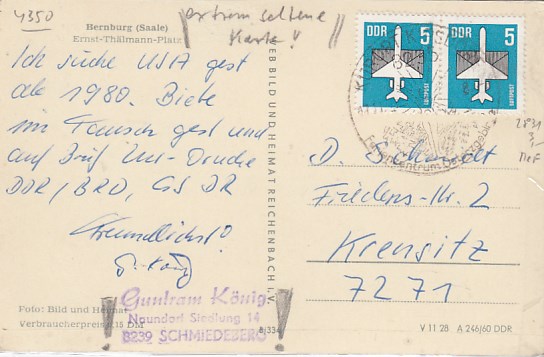 4350
extrem seltene
Karte!
Bernburg (Saale)
Ernst-Thälmann-Platz
Ich suche USA gest
ab 1980. Biete
im Tausch gest und
auf Brief
DDR/BRD,
Freundlichst!
G. König
Guntram König
Naundorf Siedlung 14
8239 SCHMIEDEBERG
Foto: Bild und Heimat
Verbraucherpreis 0,15 DM
VEB BILD UND HEIMAT REICHENBACH i. V.
DDR 5
LUFTPOST
DDR 5
LUFTPOST
2831
D. Schmidt
Friedens-Nr. 2
Krensitz
7271
V 11 28 A 246/60 DDR